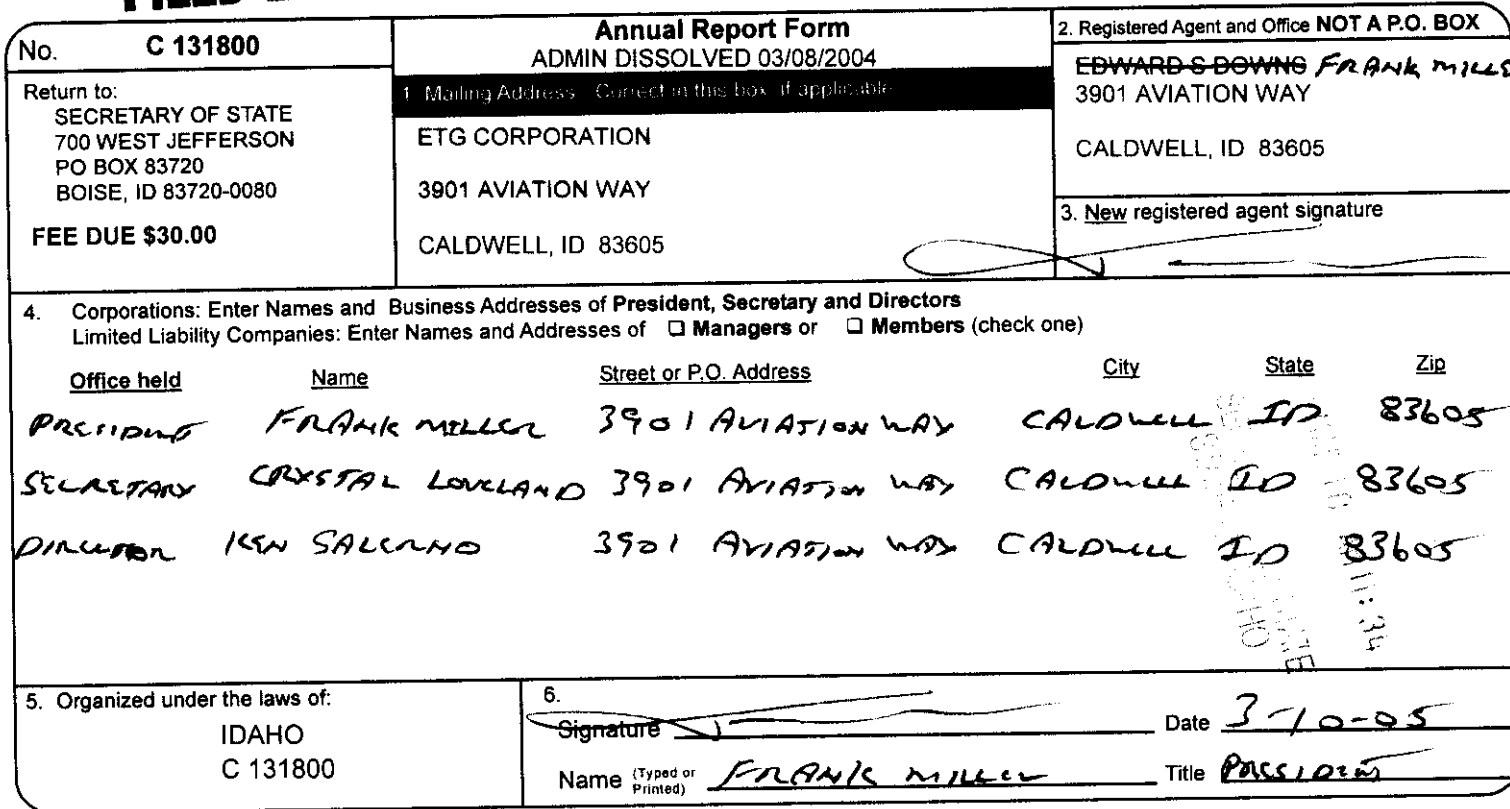 No. C 131800
Return to:
SECRETARY OF STATE
700 WEST JEFFERSON
PO BOX 83720
BOISE, ID 83720-0080
FEE DUE $30.00
Annual Report Form
ADMIN DISSOLVED 03/08/2004
1. Mailing Address Correct in this box if applicable
ETG CORPORATION
3901 AVIATION WAY
CALDWELL, ID 83605
2. Registered Agent and Office NOT A P.O. BOX
EDWARD S DOWNS FRANK
3901 AVIATION WAY
CALDWELL, ID 83605
3. New registered agent signature
4. Corporations: Enter Names and Business Addresses of President, Secretary and Directors
Limited Liability Companies: Enter Names and Addresses of ❑ Managers or ❑ Members (check one)
Office held Name Street or P.O. Address City State Zip
PRESIDENT FRANK MILLER 3901 AVIATION WAY CALDWELL ID 83605
SECRETARY CRYSTAL LOVELAND 3901 AVIATION WAY CALDWELL ID 83605
DIRECTOR KEN SALERNO 3901 AVIATION WAY CALDWELL ID 83605
11:34
5. Organized under the laws of:
IDAHO
C 131800
6.
Signature Date 3-10-05
Name (Typed or Printed) FRANK MILLER Title PRESIDENT